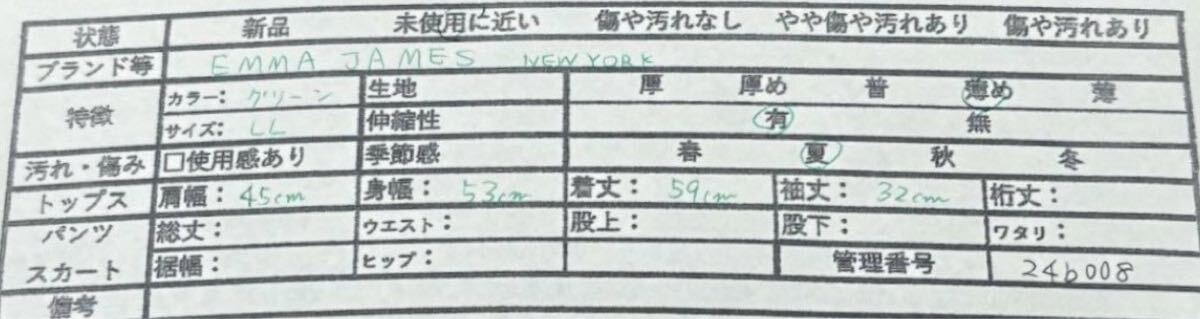 状態 新品 未使用に近い 傷や汚れなし やや傷や汚れあり 傷や汚れあり
ブランド等 EMMA JAMES NEW YORK
特徴 カラー: グリーン 生地 厚 厚め 普 薄め 薄
サイズ: LL 伸縮性 有 無
汚れ・傷み □使用感あり 季節感 春 夏 秋 冬
トップス 肩幅: 45cm 身幅: 53cm 着丈: 59cm 袖丈: 32cm 裄丈:
パンツ 総丈: ウエスト: 股上: 股下: ワタリ:
スカート 裾幅: ヒップ: 管理番号 24b008
備考